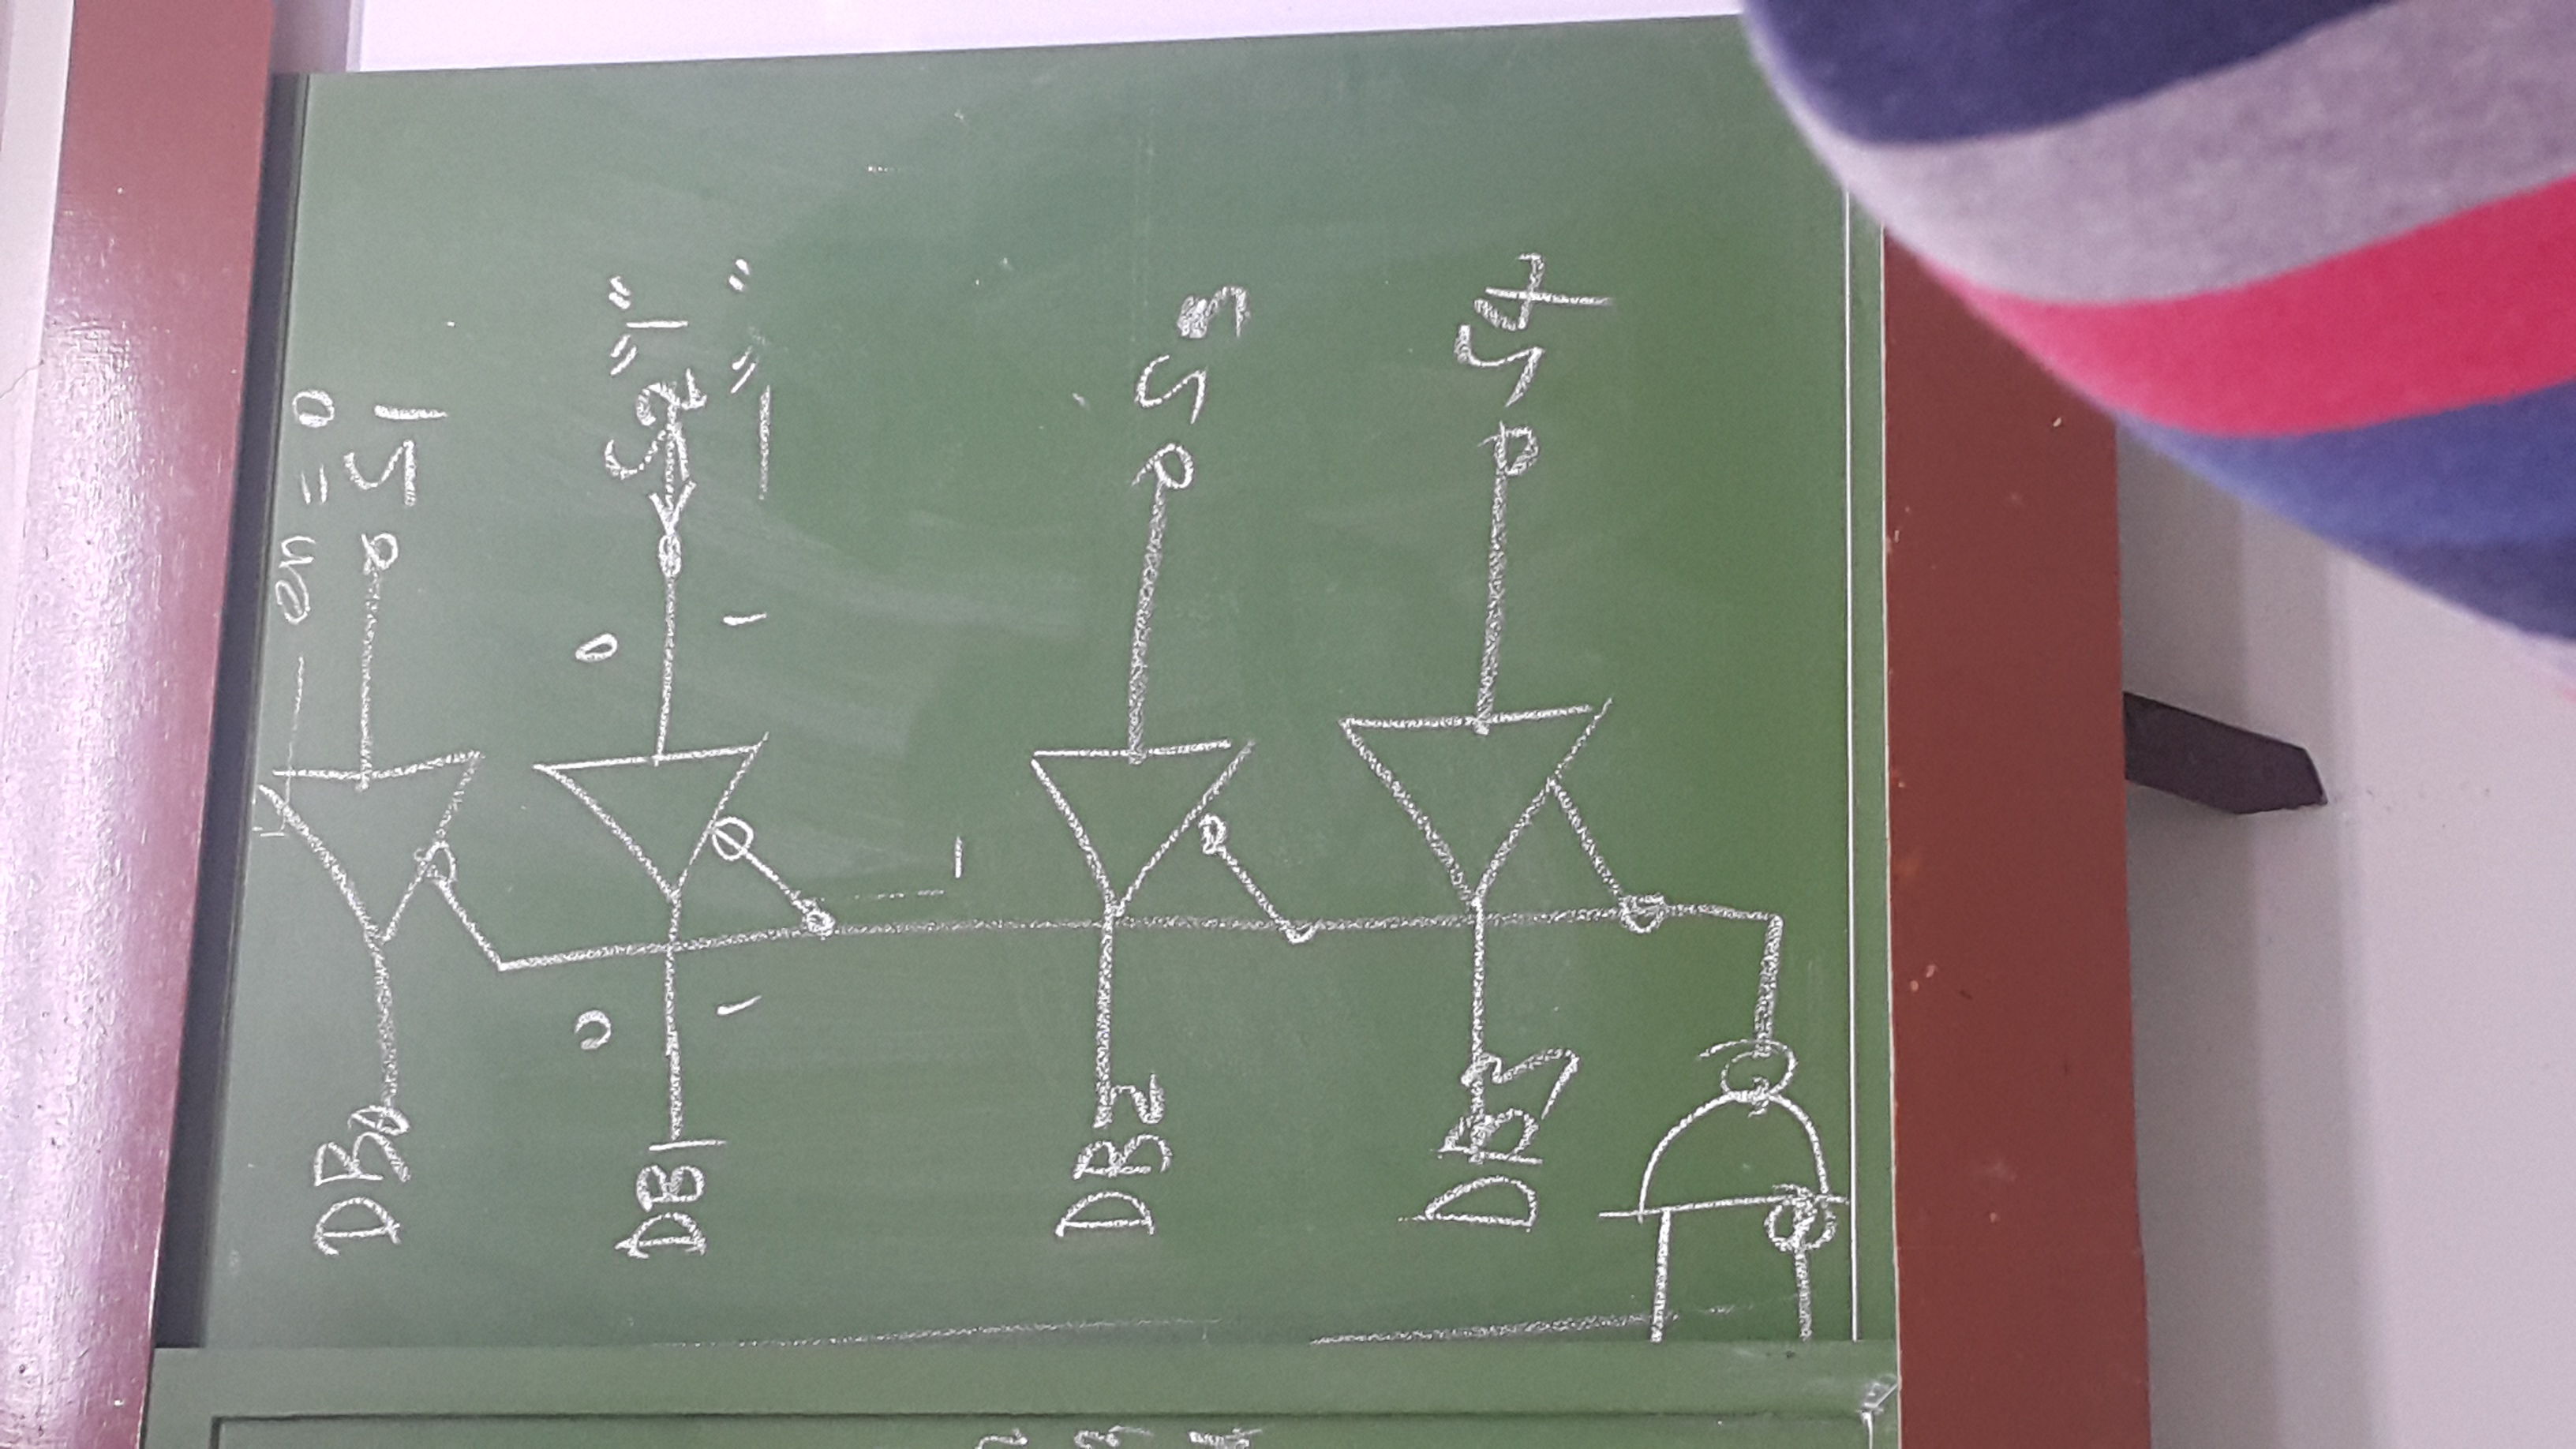 en = 0
DB0 S1
0 0
DB1 S2 "1"
1 1 — " "
DB2 S3
DB3 S4